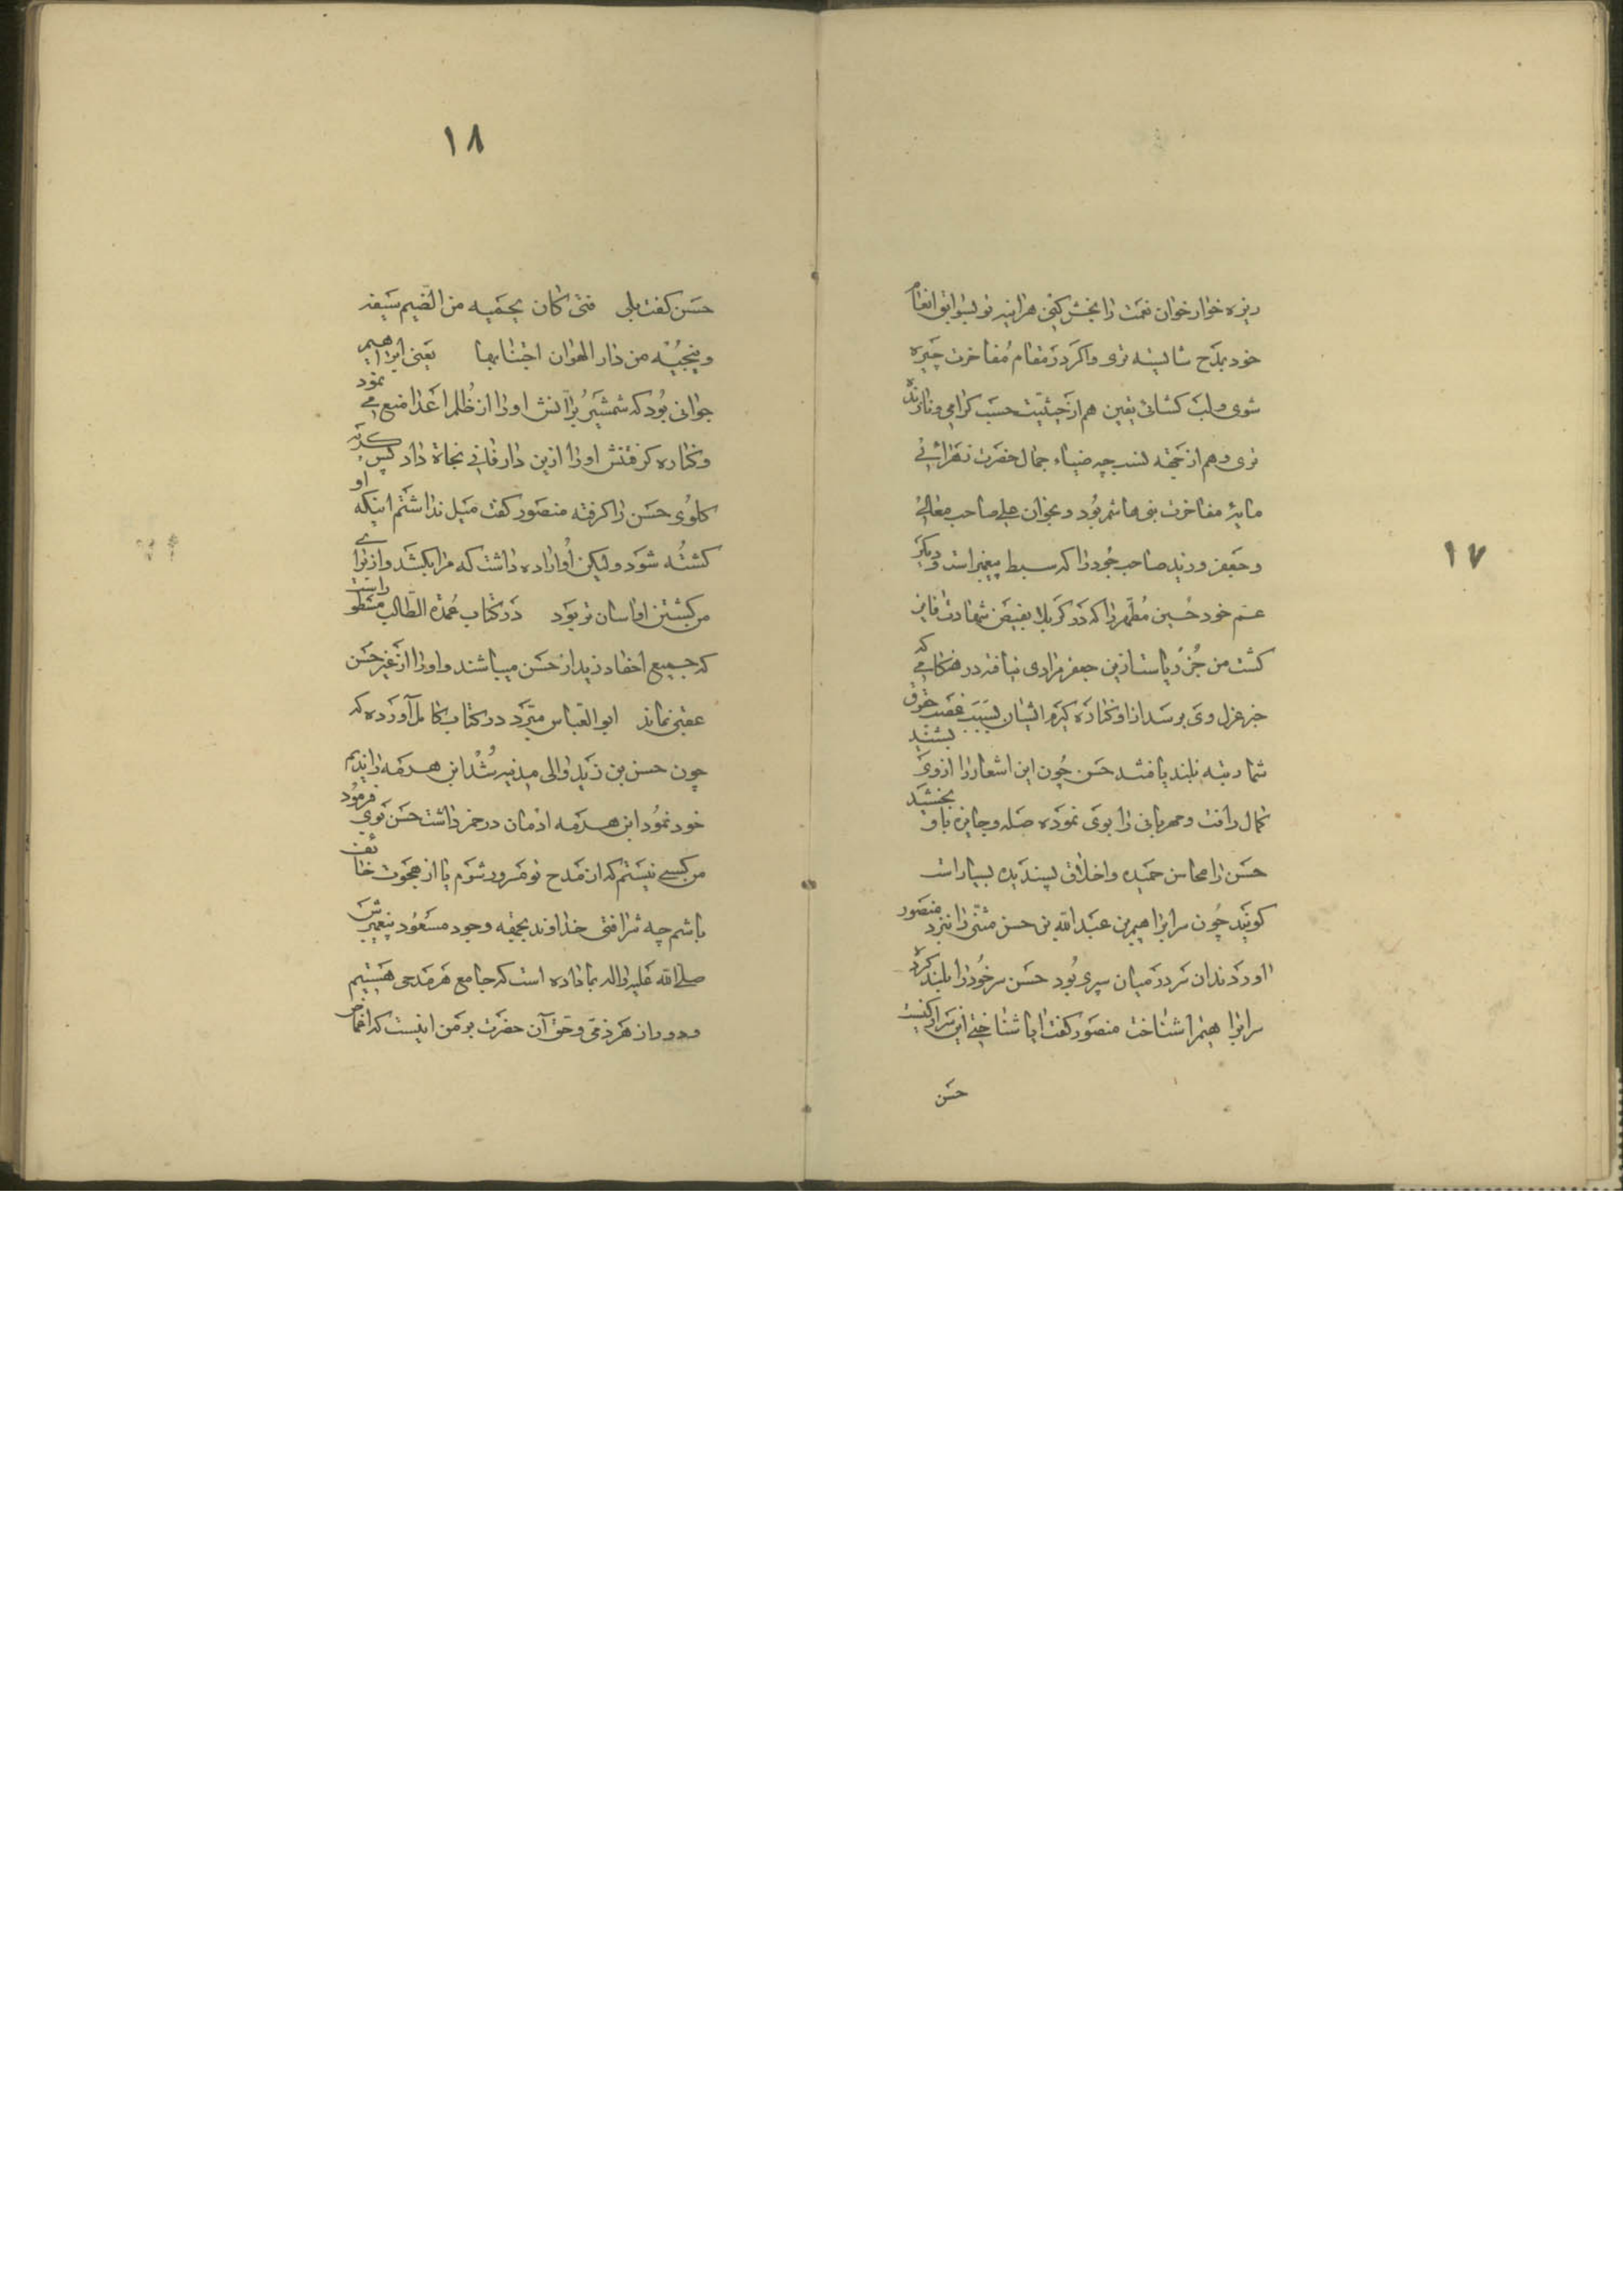 ۱۷
ریزه خوار خوان نعمت را بخش کنی هراینه تو بسوابق انعام
خود بمدح شایسته تری واکر در مقام مفاخرت چیره
شوی ولب کشائی یقین هم از حیثیت حسب کرامی ونازنده
تری وهم از جهة نسب چه ضیاء جمال حضرت زهرا شی
مایهٔ مفاخرت بنی هاشم بود و بخوان علی صاحب معالی
وجعفر و زید صاحب جود را که سبط پیغمبر است ودیکر
عم خود حسین مطهر را که در کربلا بفیض شهادت فایز
کشت من جز ریاست ازین جعفر مرادی نیافته در هنکامی که
خبر عزل وی برسد از او کناره کیرم ایشان بسبب غصب حقوق
شما رتبه بلند یافتند حسن چون این اشعار را از وی بشنید
کمال رافت ومهربانی را بوی نموده صله وجایزه باو بخشید
حسن را محاسن حمیده واخلاق پسندیده بسیار است
کویند چون سر ابراهیم بن عبدالله بن حسن مثنی را نزد منصور
اوردند ان سر در میان سپری بود حسن سر خود را بلند کرده
سر ابراهیم را شناخت منصور کفت ایا شناختی این سر از کیست
حسن
۱۸
حسن کفت بلی فتی کان یحمیه من الضیم سیفه
وینجیه من دار الهوان اجتنابها یعنی ابراهیم
جوانی بود که شمشیر برانش او را از ظلم اعدا منع می نمود
وکناره کرفتنش او را ازین دار فانی نجاة داد پس کریه
کلوی حسن را کرفته منصور کفت میل نداشتم اینکه او
کشته شود ولیکن او اراده داشت که مرا بکشد واز برای
من کشتن او اسان تر بود در کتاب عمدة الطالب مسطور است
که جمیع احفاد زید از حسن میباشند واو را از غیر حسن
عقبی نماند ابوالعباس مبرد در کتاب کامل آورده که
چون حسن بن زید والی مدینه شد ابن هرمه را ندیم
خود نمود ابن هرمه ادمان در خمر داشت حسن بوی فرمود
من کسی نیستم که از مدح تو مغرور شوم یا از هجوت خائف
باشم چه شرافتی خداوند بجهة وجود مسعود پیغمبرش
صلی الله علیه واله بما داده است که جامع هر مدحی هستیم
ودور از هر ذمی وحق آن حضرت بر من اینست که اغماض